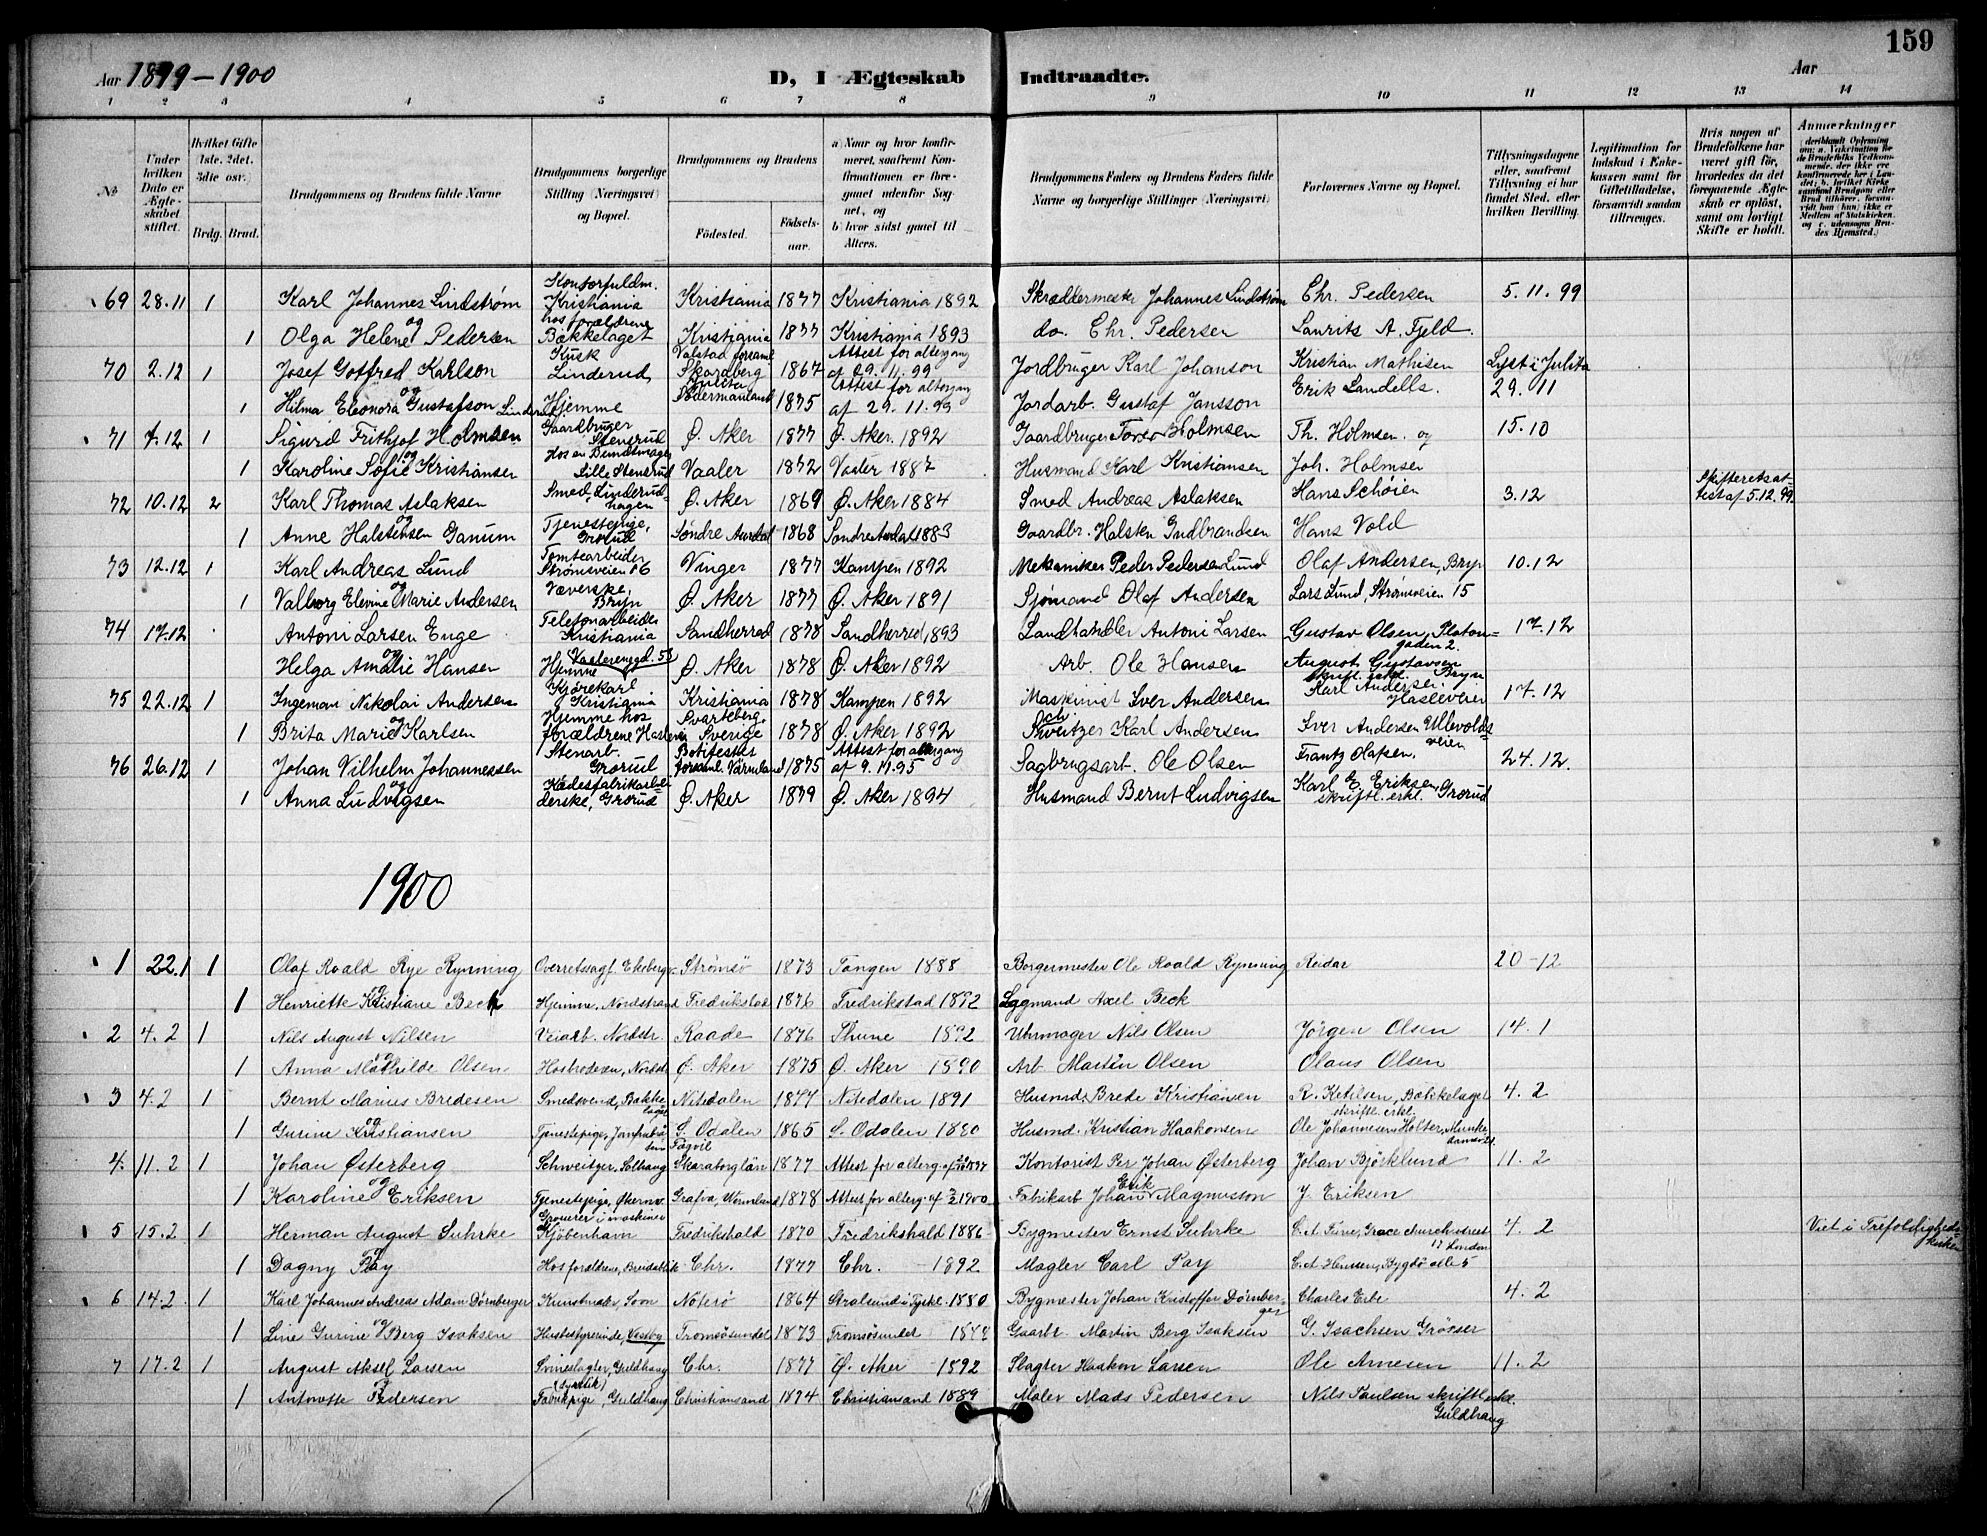 159
Aar 1899-1900 D, I Ægteskab Indtraadte. Aar
1 2 3 4 5 6 7 8 9 10 11 12 13 14
No. Under hvilken Dato er Ægteskabet stiftet. Hvilket Gifte 1ste. 2det. 3dte osv.) Brdg. Brud. Brudgommens og Brudens fulde Navne Brudgommens borgerlige Stilling (Næringsvei) og Bopæl. Brudgommens og Brudens Fødested. Fødselsaar. a) Naar og hvor konfirmeret, saafremt Konfirmationen er foregaaet udenfor Sognet, og b) hvor sidst gaaet til Alters. Brudgommens Faders og Brudens Faders fulde Navne og borgerlige Stillinger (Næringsvei) Forlovernes Navne og Bopæl. Tillysningsdagene eller, saafremt Tillysning ei har fundet Sted, efter hvilken Bevilling. Legitimation for Indskud i Enkekassen samt for Giftetilladelse, forsaavidt saadan tiltrænges. Hvis nogen af Brudefolkene har været gift før, hvorledes da det foregaaende Ægteskab er opløst, samt om lovligt Skifte er holdt. Anmærkninger
69 28.11 1 Karl Johannes Lindstrøm Kontorfuldm. Kristiania Kristiania 1877 Kristiania 1892 Skræddermester Johannes Lindstrøm Chr. Pedersen 5.11.99
og
1 Olga Helene Pedersen hos forældrene Bækkelaget Kristiania 1877 Kristiania 1893 do. Chr. Pedersen Laurits A. Fjeld.
70 2.12 1 Josef Gotfred Karlson Kusk Linderud Skarsberg 1867 Attest for altergang af 29.11.99 Jordbruger Karl Johanson Kristian Mathisen Lyst i Julita
og
1 Hilma Eleonora Gustafson Linderud Hjemme Julita Södermanland 1875 Attest for altergang af 29.11.99 Jordarb. Gustaf Jansson Erik Landells. 29.11
71 7.12 1 Sigurd Frithjof Holmsen Gaardbruger Stensrud Ø. Aker 1877 Ø. Aker. 1892 Gaardbruger Holmsen Th. Holmsen. og 15.10
og
1 Karoline Sofie Kristiansen Lille Stensrud Vaaler 1872 Vaaler 1887 Husmand Karl Kristiansen Joh. Holmsen
72 10.12 2 Karl Thomas Aslaksen Smed, Linderudhagen Ø. Aker 1869 Ø. Aker 1884 Smed Andreas Aslaksen Hans Schøien 3.12 Skifteretsattest af 5.12.99
og
1 Anne Halstensen Ganum Tjenestepige, Grorud Søndre Aurdal 1868 Søndre Aurdal 1883 Gaardbr. Halsten Gudbrandsen Hans Vold
73 12.12 1 Karl Andreas Lund Tomtearbeider Strømsveien 16 Vinger 1877 Kampen 1892 Mekaniker Peder Pedersen Lund Olaf Andersen, Bryn 10.12
og
1 Valborg Elevine Marie Andersen Væverske, Bryn Ø. Aker 1877 Ø. Aker 1891 Sjømand Olaf Andersen Lars Lund, Strømsveien 15
74 17.12 Antoni Larsen Enge Telefonarbeider Kristiania Sandherred 1878 Sandherred 1893 Landhandler Antoni Larsen Gustav Olsen, Platougaden 2. 17.12
og
Helga Amalie Hansen Hjemme Vaalerenggd. 53 Ø. Aker 1878 Ø. Aker 1892 Arb. Ole Hansen August Gustavsen skriftl. erkl. Bryn
75 22.12 1 Ingeman Nikolai Andersen Kjørekarl Kristiania Kristiania 1878 Kampen 1892 Maskinist Iver Andersen Karl Andersen. Hasleveien 17.12
og
1 Brita Marie Karlsen Hjemme hos forældrene Haslevei Svarteberg, Sverige 1878 Ø. Aker 1892 Schveitzer Karl Andersen Iver Andersen Ullevoldsveien
76 26.12 1 Johan Vilhelm Johannessen Stenarb. Grorud forsaml. Värmland 1875 Attest for altergang af 9.11.95 Sagbrugsarb. Ole Olsen Frantz Olafsen. 24.12.
og
1 Anna Ludvigsen Kædesfabrikarbeiderske, Grorud Ø. Aker 1879 Ø. Aker 1894 Husmand Bernt Ludvigsen Karl E. Eriksen, Grorud skriftl. erkl.
1900
1 22.1 1 Olaf Roald Rye Rynning Overretssagf. Ekebergv. Strømsø 1873 Tangen 1888 Borgermester Ole Roald Rynning Reidar 20-12
og
1 Henriette Kristiane Beck Hjemme, Nordstrand Fredrikstad 1876 Fredrikstad 1892 Lagmand Axel Beck
2 4.2 1 Nils August Nilsen Veiarb. Nordstr. Raade 1876 Thune 1892 Uhrmager Nils Olsen Jørgen Olsen 14.1
og
1 Anna Mathilde Olsen Hos broderen, Nordstr. Ø. Aker 1875 Ø. Aker 1890 Arb Martin Olsen Olaus Olsen
3 4.2 1 Bernt Marius Bredesen Smedsvend, Bækkelaget Nitedalen 1877 Nitedalen 1891 Husmd. Brede Kristiansen R. Ketilsen, Bækkelaget skriftl. erkl. 4.2
og
1 Gurine Kristiansen Tjenestepige, S. Odalen 1865 S. Odalen 1880 Husmd. Kristian Haakonsen Ole Johannesen Holter, Munkedamsv.
4. 11.2 1 Johan Østerberg Schweitzer, Solhaug Skaraborg län 1877 Attest for alterg. Kontorist Per Johan Østerberg Johan Björklund 11.2
og
1 Karoline Eriksen Tjenestepige, Økernv. Grafva, Wermland 1878 Attest for alterg. af 1900 Fabrikarb Johan Erik Magnusson J. Eriksen
5 15.2 1 Herman August Suhrke Grosserer i maskiner Kjøbenhavn Fredrikshald 1870 Fredrikshald 1886 Bygmester Ernst Suhrke C. A. Fine, Grace church street 17 London 4.2 Viet i Trefoldighedskirken
og
1 Dagny Pay Hos forældrene, Breidablik Chr. 1877 Chr. 1892 Mægler Carl Pay C. A. Hansen, Bygdø alle 5
6 14.2. 1 Karl Johannes Andreas Adam Dørnberger Kunstmaler, Soon Nøterø 1864 Stralsund i Tyskl. 1880 Bygmester Johan Kristoffer Dørnberger Charles Erbe 4.2
og
1 Line Gurine Berg Isaksen Husbestyrerinde, Vestby Tromsøsundet 1873 Tromsøsundet Gaarbr. Martin Berg Isaksen G. Isachsen Grøsser
7 17.2 1 August Aksel Larsen Svineslagter, Guldhaug Chr. 1877 Ø. Aker 1892 Slagter Haakon Larsen Ole Arnesen 11.2
og
1 Antonette Pedersen Fabrikpige, Guldhaug Christiansand 1874 Christiansand 1889 Maler Mads Pedersen Nils Paulsen skriftl. erkl. Guldhaug